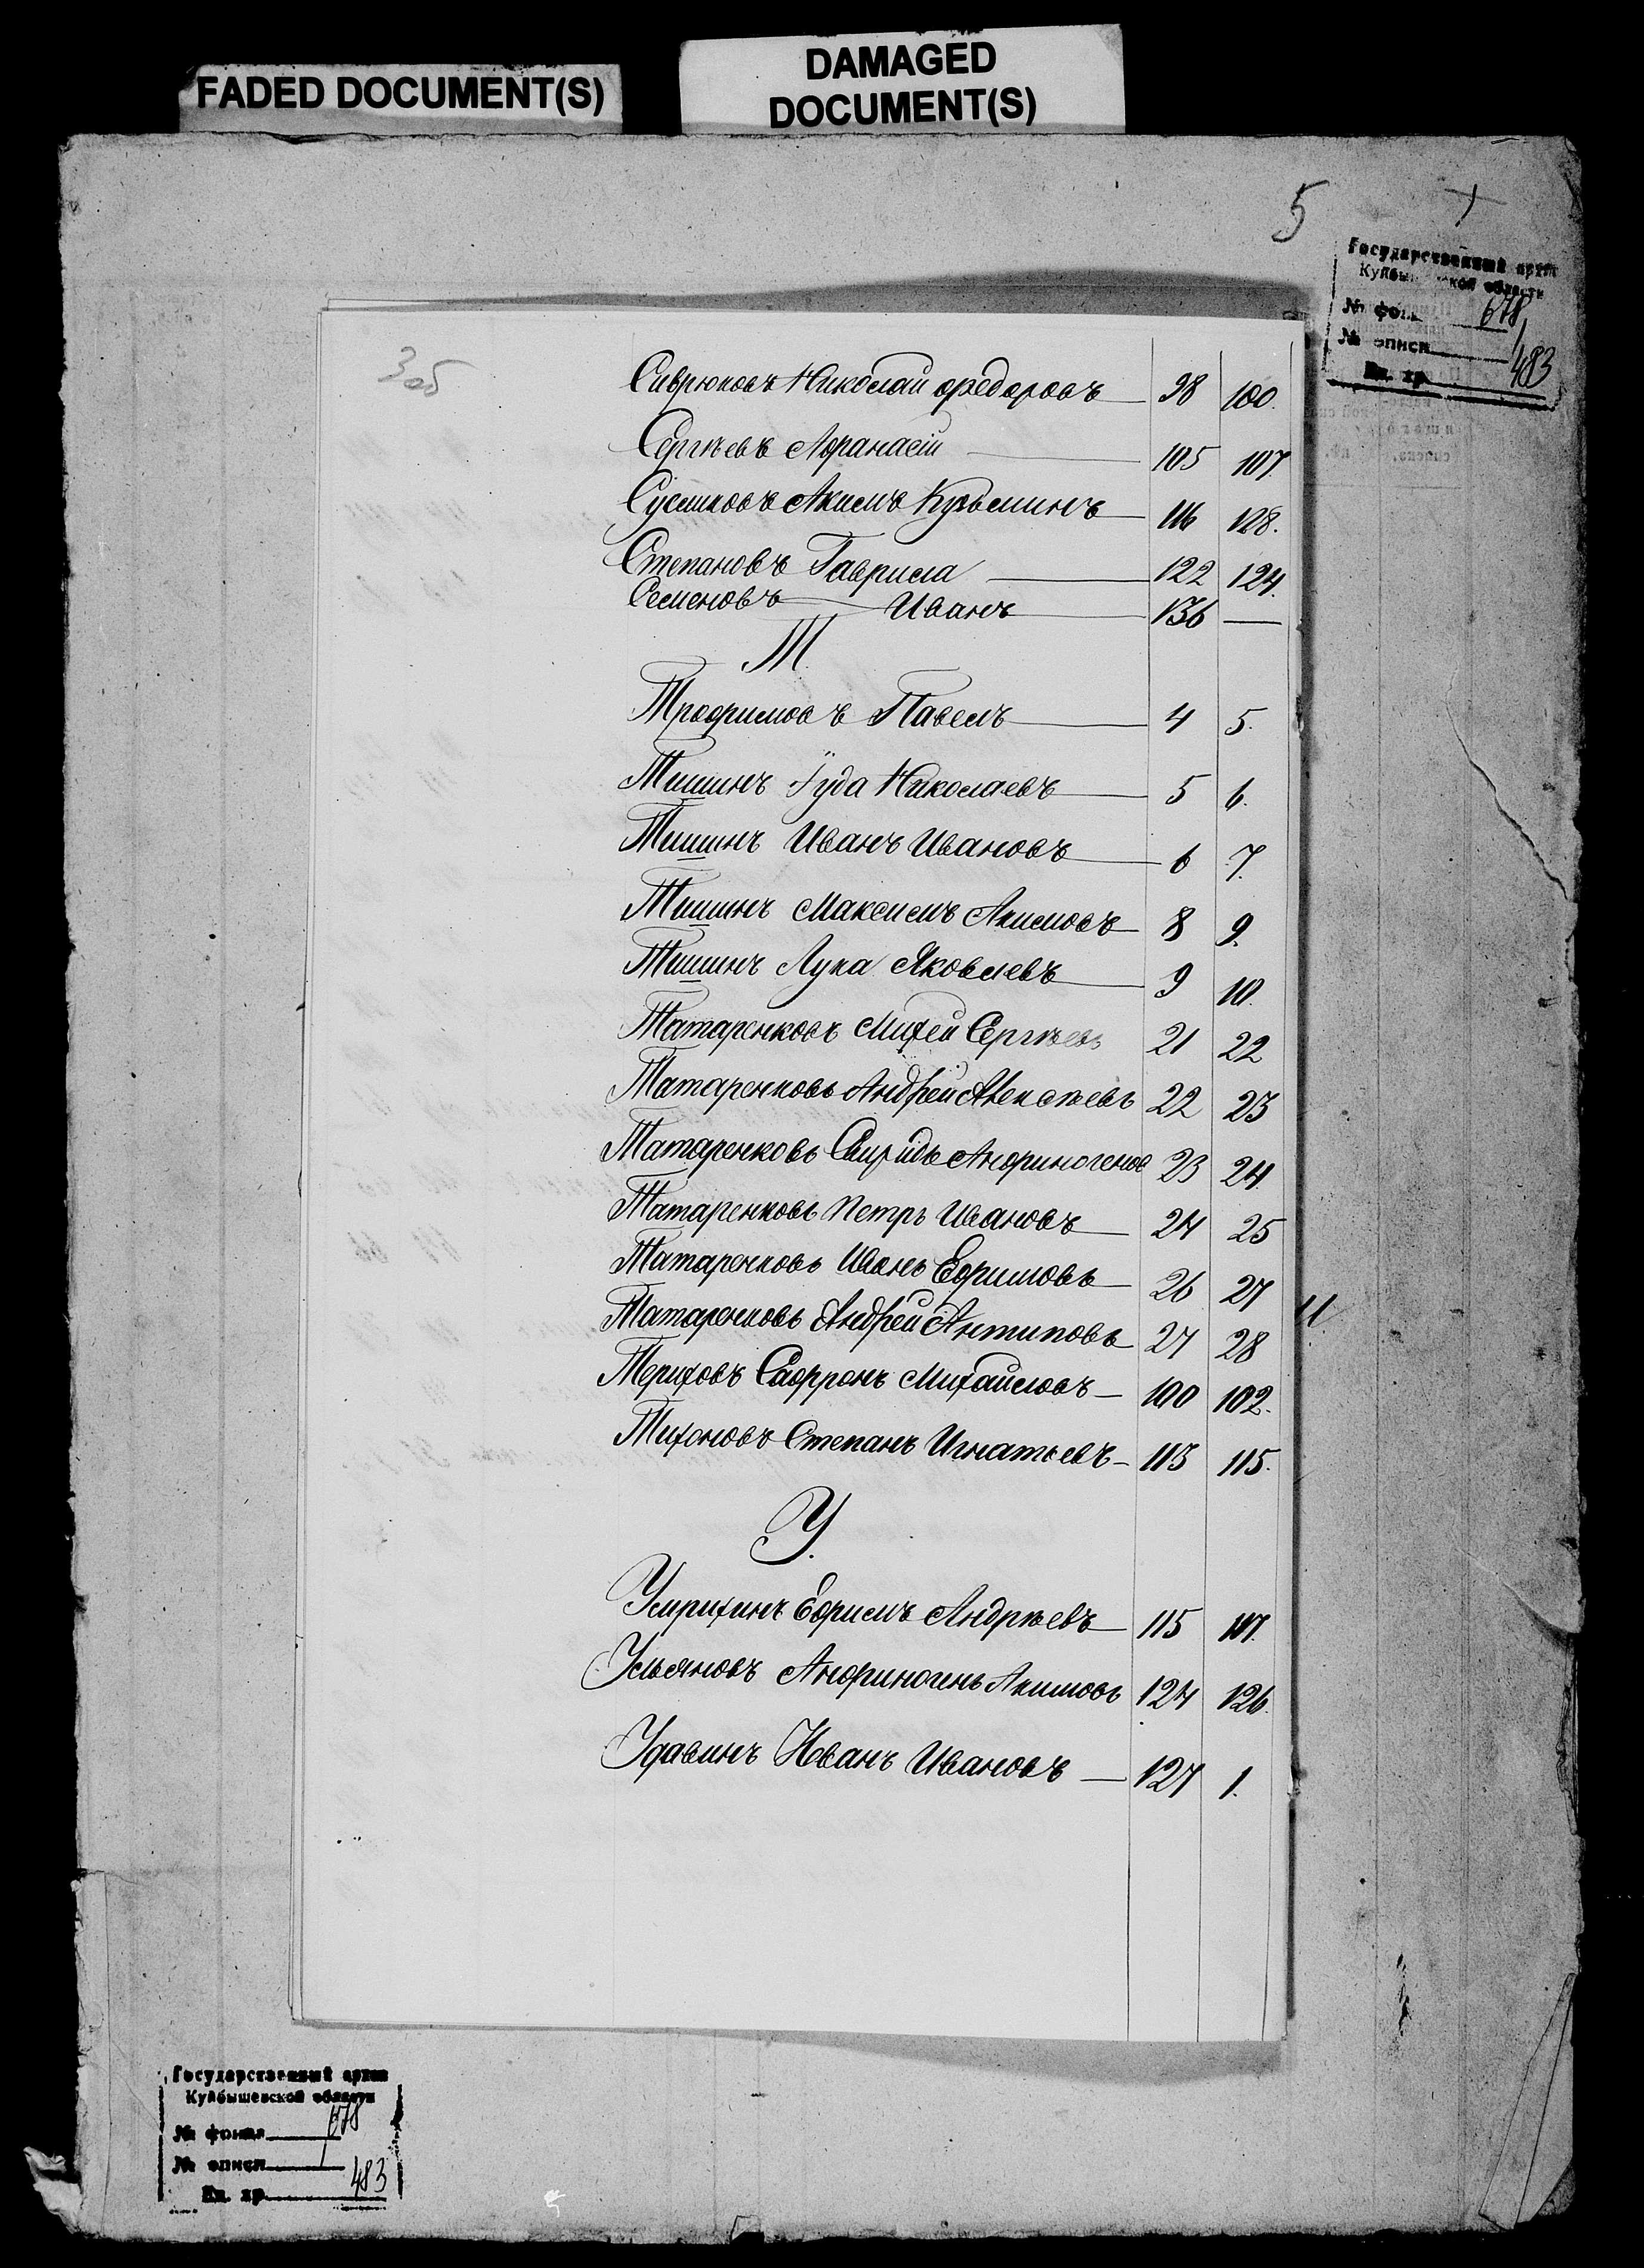 FADED DOCUMENT(S)
DAMAGED
DOCUMENT(S)
5
Государственный архив
Куйбышевской области
№ фонда 678
№ описи 1
Ед. хр. 483
3 об
Сиврюковъ Николай Федоровъ 98 100.
Сергѣевъ Афанасій 105 107.
Сусликовъ Акимъ Кузьминъ 116 128.
Степановъ Гаврила 122 124.
Семеновъ Иванъ 136 —
Т.
Трофимовъ Павелъ 4 5.
Тишинъ Іуда Николаевъ 5 6.
Тишинъ Иванъ Ивановъ 6 7.
Тишинъ Максимъ Акимовъ 8 9.
Тишинъ Лука Яковлевъ 9 10.
Татаренковъ Михей Сергѣевъ 21 22
Татаренковъ Андрей Алексѣевъ 22 23
Татаренковъ Свиридъ Анфиногенов 23 24.
Татаренковъ Петръ Ивановъ 24 25
Татаренковъ Иванъ Ефимовъ 26 27
Татаренковъ Андрей Антиповъ 27 28
Териховъ Сафронъ Михайловъ 100 102.
Тихоновъ Степанъ Игнатьевъ 113 115.
У.
Ефимъ Андрѣевъ 115 117.
Ульяновъ Анфиногенъ Акимовъ 124 126.
Иванъ Ивановъ 127 1.
Государственный архив
Куйбышевской области
№ фонда 678
№ описи 1
Ед. хр. 483